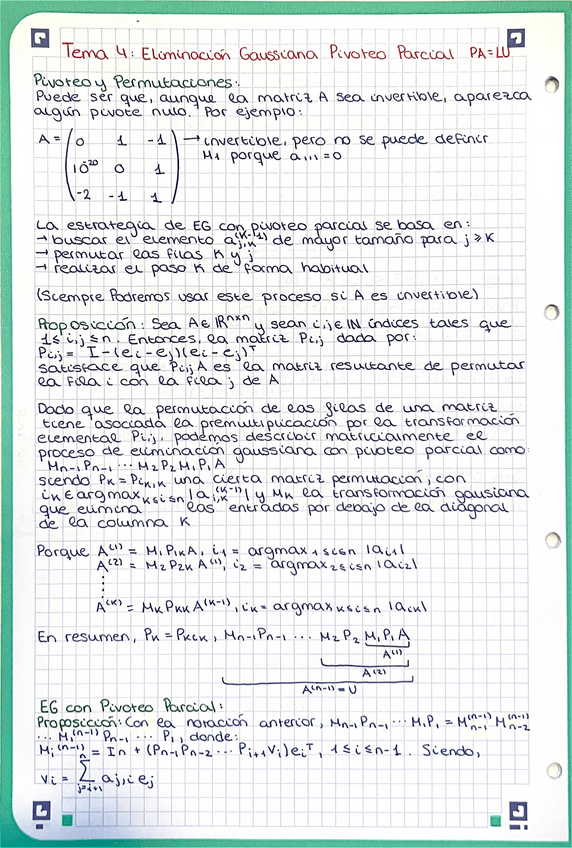 Tema 4: Eliminación Gaussiana Pivoteo Parcial PA=LU
Pivoteo y Permutaciones:
Puede ser que, aunque la matriz A sea invertible, aparezca
algún pivote nulo. Por ejemplo:
A = ( 0 1 -1 ) → invertible, pero no se puede definir
M₁ porque a₁,₁ = 0
10²⁰ 0 1
-2 -1 1
La estrategia de EG con pivoteo parcial se basa en:
→ buscar el elemento a_{j,k}^{(k-1)} de mayor tamaño para j ≥ k
→ permutar las filas k y j
→ realizar el paso k de forma habitual
(Siempre Podremos usar este proceso si A es invertible)
Proposición: Sea A ∈ ℝⁿˣⁿ y sean i,j ∈ ℕ índices tales que
1 ≤ i,j ≤ n. Entonces, la matriz Pi,j dada por:
Pi,j = I - (ei - ej)(ei - ej)ᵀ
satisface que Pi,j A es la matriz resultante de permutar
la fila i con la fila j de A
Dado que la permutación de las filas de una matriz
tiene asociada la premultiplicación por la transformación
elemental Pi,j, podemos describir matricialmente el
proceso de eliminación gaussiana con pivoteo parcial como:
Mn-1 Pn-1 ··· M₂ P₂ M₁ P₁ A
siendo Pk = P_{ik,k} una cierta matriz permutación, con
ik ∈ argmax_{k≤i≤n} |a_{i,k}^{(k-1)}| y Mk la transformación gausiana
que elimina las entradas por debajo de la diagonal
de la columna k
Porque A⁽¹⁾ = M₁ P₁k A, i₁ = argmax_{1≤i≤n} |ai1|
A⁽²⁾ = M₂ P₂k A⁽¹⁾, i₂ = argmax_{2≤i≤n} |ai2|
⋮
A⁽ᵏ⁾ = Mk Pkk A⁽ᵏ⁻¹⁾, ik = argmax_{k≤i≤n} |aik|
En resumen, Pk = Pkik, Mn-1 Pn-1 ··· M₂ P₂ M₁ P₁ A
A⁽¹⁾
A⁽²⁾
A⁽ⁿ⁻¹⁾ = U
EG con Pivoteo Parcial:
Proposición: Con la notación anterior, Mn-1 Pn-1 ··· M₁ P₁ = M_{n-1}^{(n-1)} M_{n-2}^{(n-1)}
··· M₁⁽ⁿ⁻¹⁾ Pn-1 ··· P₁, donde:
Mi⁽ⁿ⁻¹⁾ = In + (Pn-1 Pn-2 ··· Pi+1 Vi) eiᵀ, 1 ≤ i ≤ n-1. Siendo,
Vi = Σ_{j=i+1}^{n} aj,i ej